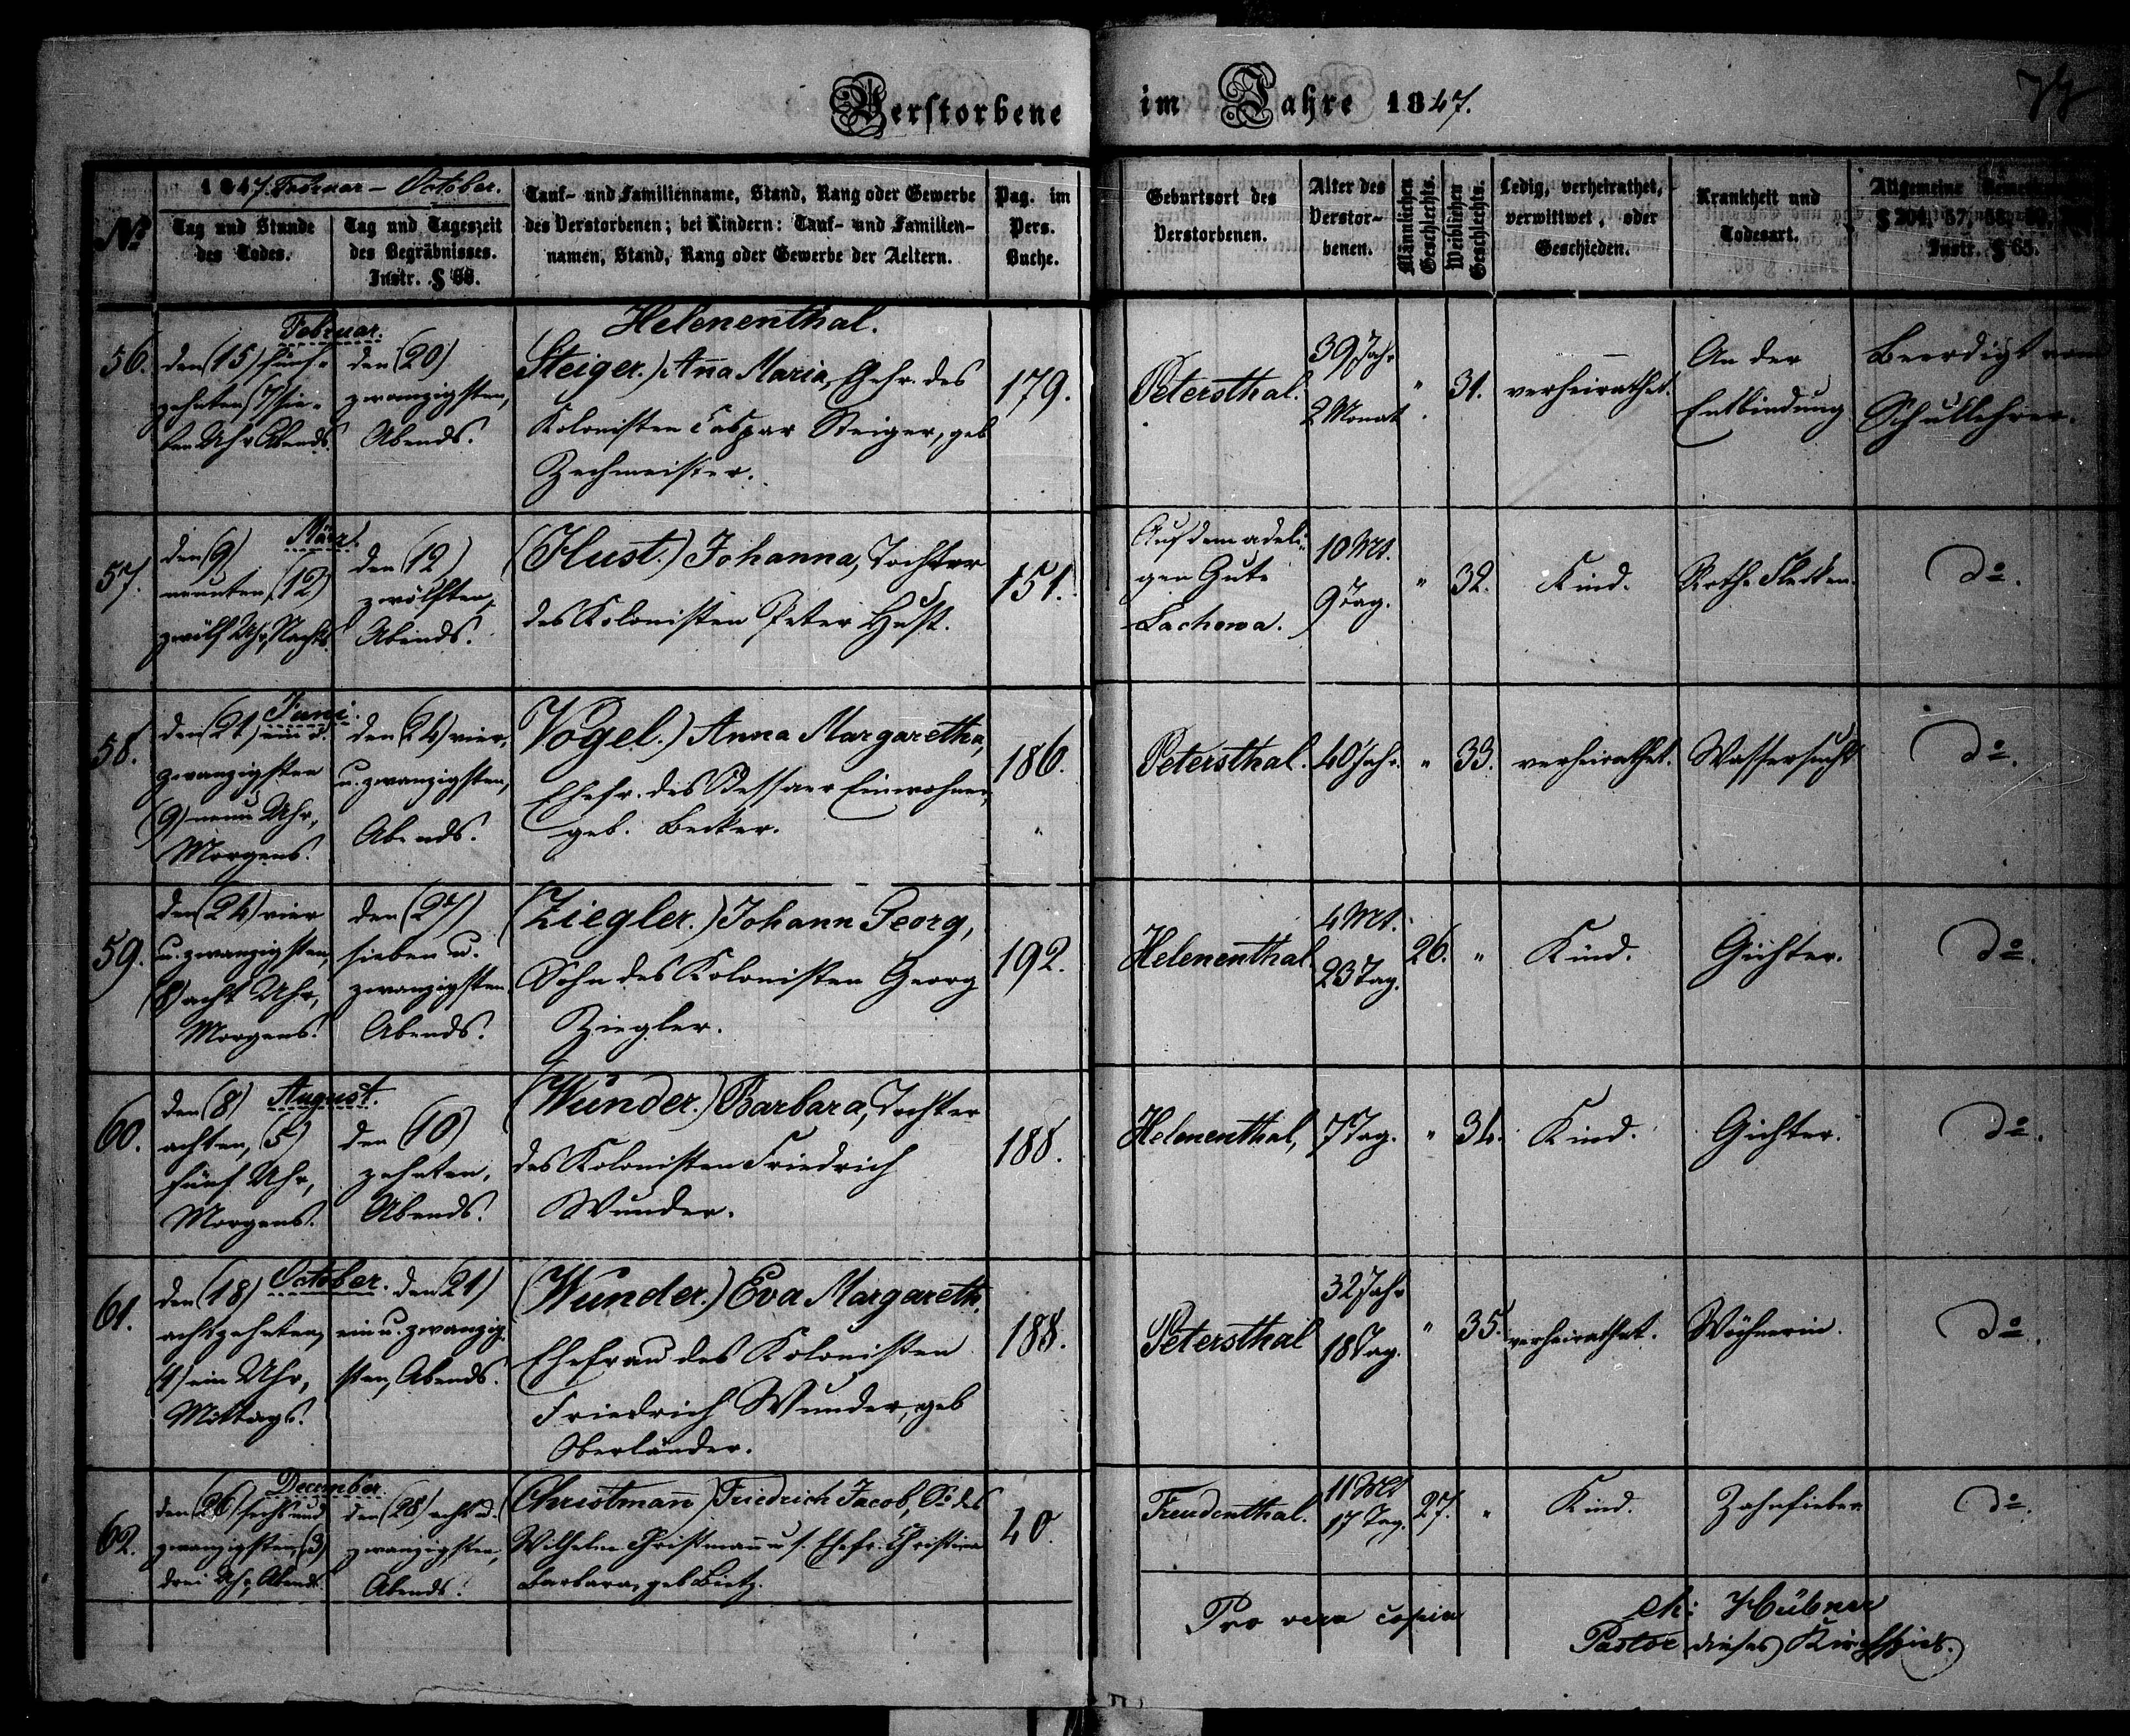 Verstorbene im Jahre 1847.
№
1847. Februar – October.
Tag und Stunde
des Todes.
Tag und Tageszeit
des Begräbnisses.
Instr. § 66.
Tauf- und Familienname, Stand, Rang oder Gewerbe
des Verstorbenen; bei Kindern: Tauf- und Familien-
namen, Stand, Rang oder Gewerbe der Aeltern.
Pag. im
Pers.
Buche.
Geburtsort des
Verstorbenen.
Alter des
Verstor-
benen.
Männlichen
Geschlechts.
Weiblichen
Geschlechts.
Ledig, verheirathet,
verwittwet, oder
Geschieden.
Krankheit und
Todesart.
Allgemeine
Instr. § 65.
Helenenthal.
Februar.
56.
den (15) fünf-
zehnten (7) sie-
ben Uhr Abends.
den (20)
zwanzigsten,
Abends.
Steiger.) Ana Maria, Ehefr. des
Kolonisten Caspar Steiger, geb
Zechmeister.
179.
Petersthal.
39 Jahr
2 Monat
"
31.
verheirathet.
An der
Entbindung.
Beerdigt vom
Schullehrer.
März.
57.
den (9)
neunten, (12)
zwölf Uhr, Nachts.
den (12)
zwölften,
Abends.
(Hust.) Johanna, Tochter
des Kolonisten Peter Hust.
151.
Auf dem adeli-
gen Gute
Lachowa.
10 Mt.
9 Tag.
"
32.
Kind.
Rothe Flecken.
do.
Juni.
58.
den (21) ein u.
zwanzigsten
(9) neun Uhr,
Morgens.
den (24) vier
u. zwanzigsten,
Abends.
Vogel.) Anna Margaretha,
Ehefr. des Odessaer Einwohner,
geb. Becker.
186.
Petersthal.
40 Jahr.
"
33.
verheirathet.
Wassersucht
do.
59.
den (24) vier
u. zwanzigsten,
(8) acht Uhr,
Morgens.
den (27)
sieben u.
zwanzigsten
Abends.
(Ziegler.) Johann Georg,
Sohn des Kolonisten Georg
Ziegler.
192.
Helenenthal.
4 Mt.
23 Tag.
26.
"
Kind.
Gichter.
do.
August.
60.
den (8)
achten, (5)
fünf Uhr,
Morgens.
den (10)
zehnten,
Abends.
(Wunder.) Barbara, Tochter
des Kolonisten Friedrich
Wunder.
188.
Helenenthal,
7 Tag.
"
34.
Kind.
Gichter.
do.
October.
61.
den (18)
achtzehnten,
(1) ein Uhr,
Mittags.
den (21)
ein u. zwanzig-
sten, Abends.
(Wunder.) Eva Margareth.
Ehefrau des Kolonisten
Friedrich Wunder, geb
Oberländer.
188.
Petersthal
32 Jahr
18 Tag.
"
35.
verheirathet.
Wöchnerin.
do.
December.
62.
den (26) sechs und
zwanzigsten, (3)
drei Uhr, Abends.
den (28) acht u.
zwanzigsten,
Abends.
(Christmann) Friedrich Jacob, So. des
Wilhelm Christmann u. s. Ehefr. Christina
Barbara, geb Bietz.
40.
Freudenthal.
11 Mt
17 Tag.
27.
"
Kind.
Zahnfieber
do.
Pro vera copia
Hübner
Pastor dieses Kirchspiels.